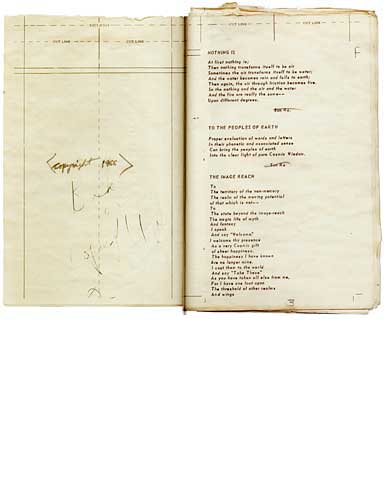 CUT LINE
CUT LINE
CUT LINE
<copyright 1966>
CUT LINE
CUT LINE
F
NOTHING IS
At first nothing is;
Then nothing transforms itself to be air
Sometimes the air transforms itself to be water;
And the water becomes rain and falls to earth;
Then again, the air through friction becomes fire.
So the nothing and the air and the water
And the fire are really the same—
Upon different degrees.
Sun Ra
TO THE PEOPLES OF EARTH
Proper evaluation of words and letters
In their phonetic and associated sense
Can bring the peoples of earth
Into the clear light of pure Cosmic Wisdom.
Sun Ra
THE IMAGE REACH
To
The territory of the non-memory
The realm of the moving potential
of that which is not—
To
The state beyond the image-reach
The magic life of myth
And fantasy
I speak
And say "Welcome"
I welcome thy presence
As a very Cosmic gift
of sheer happiness.
The happiness I have known
Are no longer mine.
I cast them to the world
And say "Take These"
As you have taken all else from me,
For I have one foot upon
The threshold of other realms
And wings
3